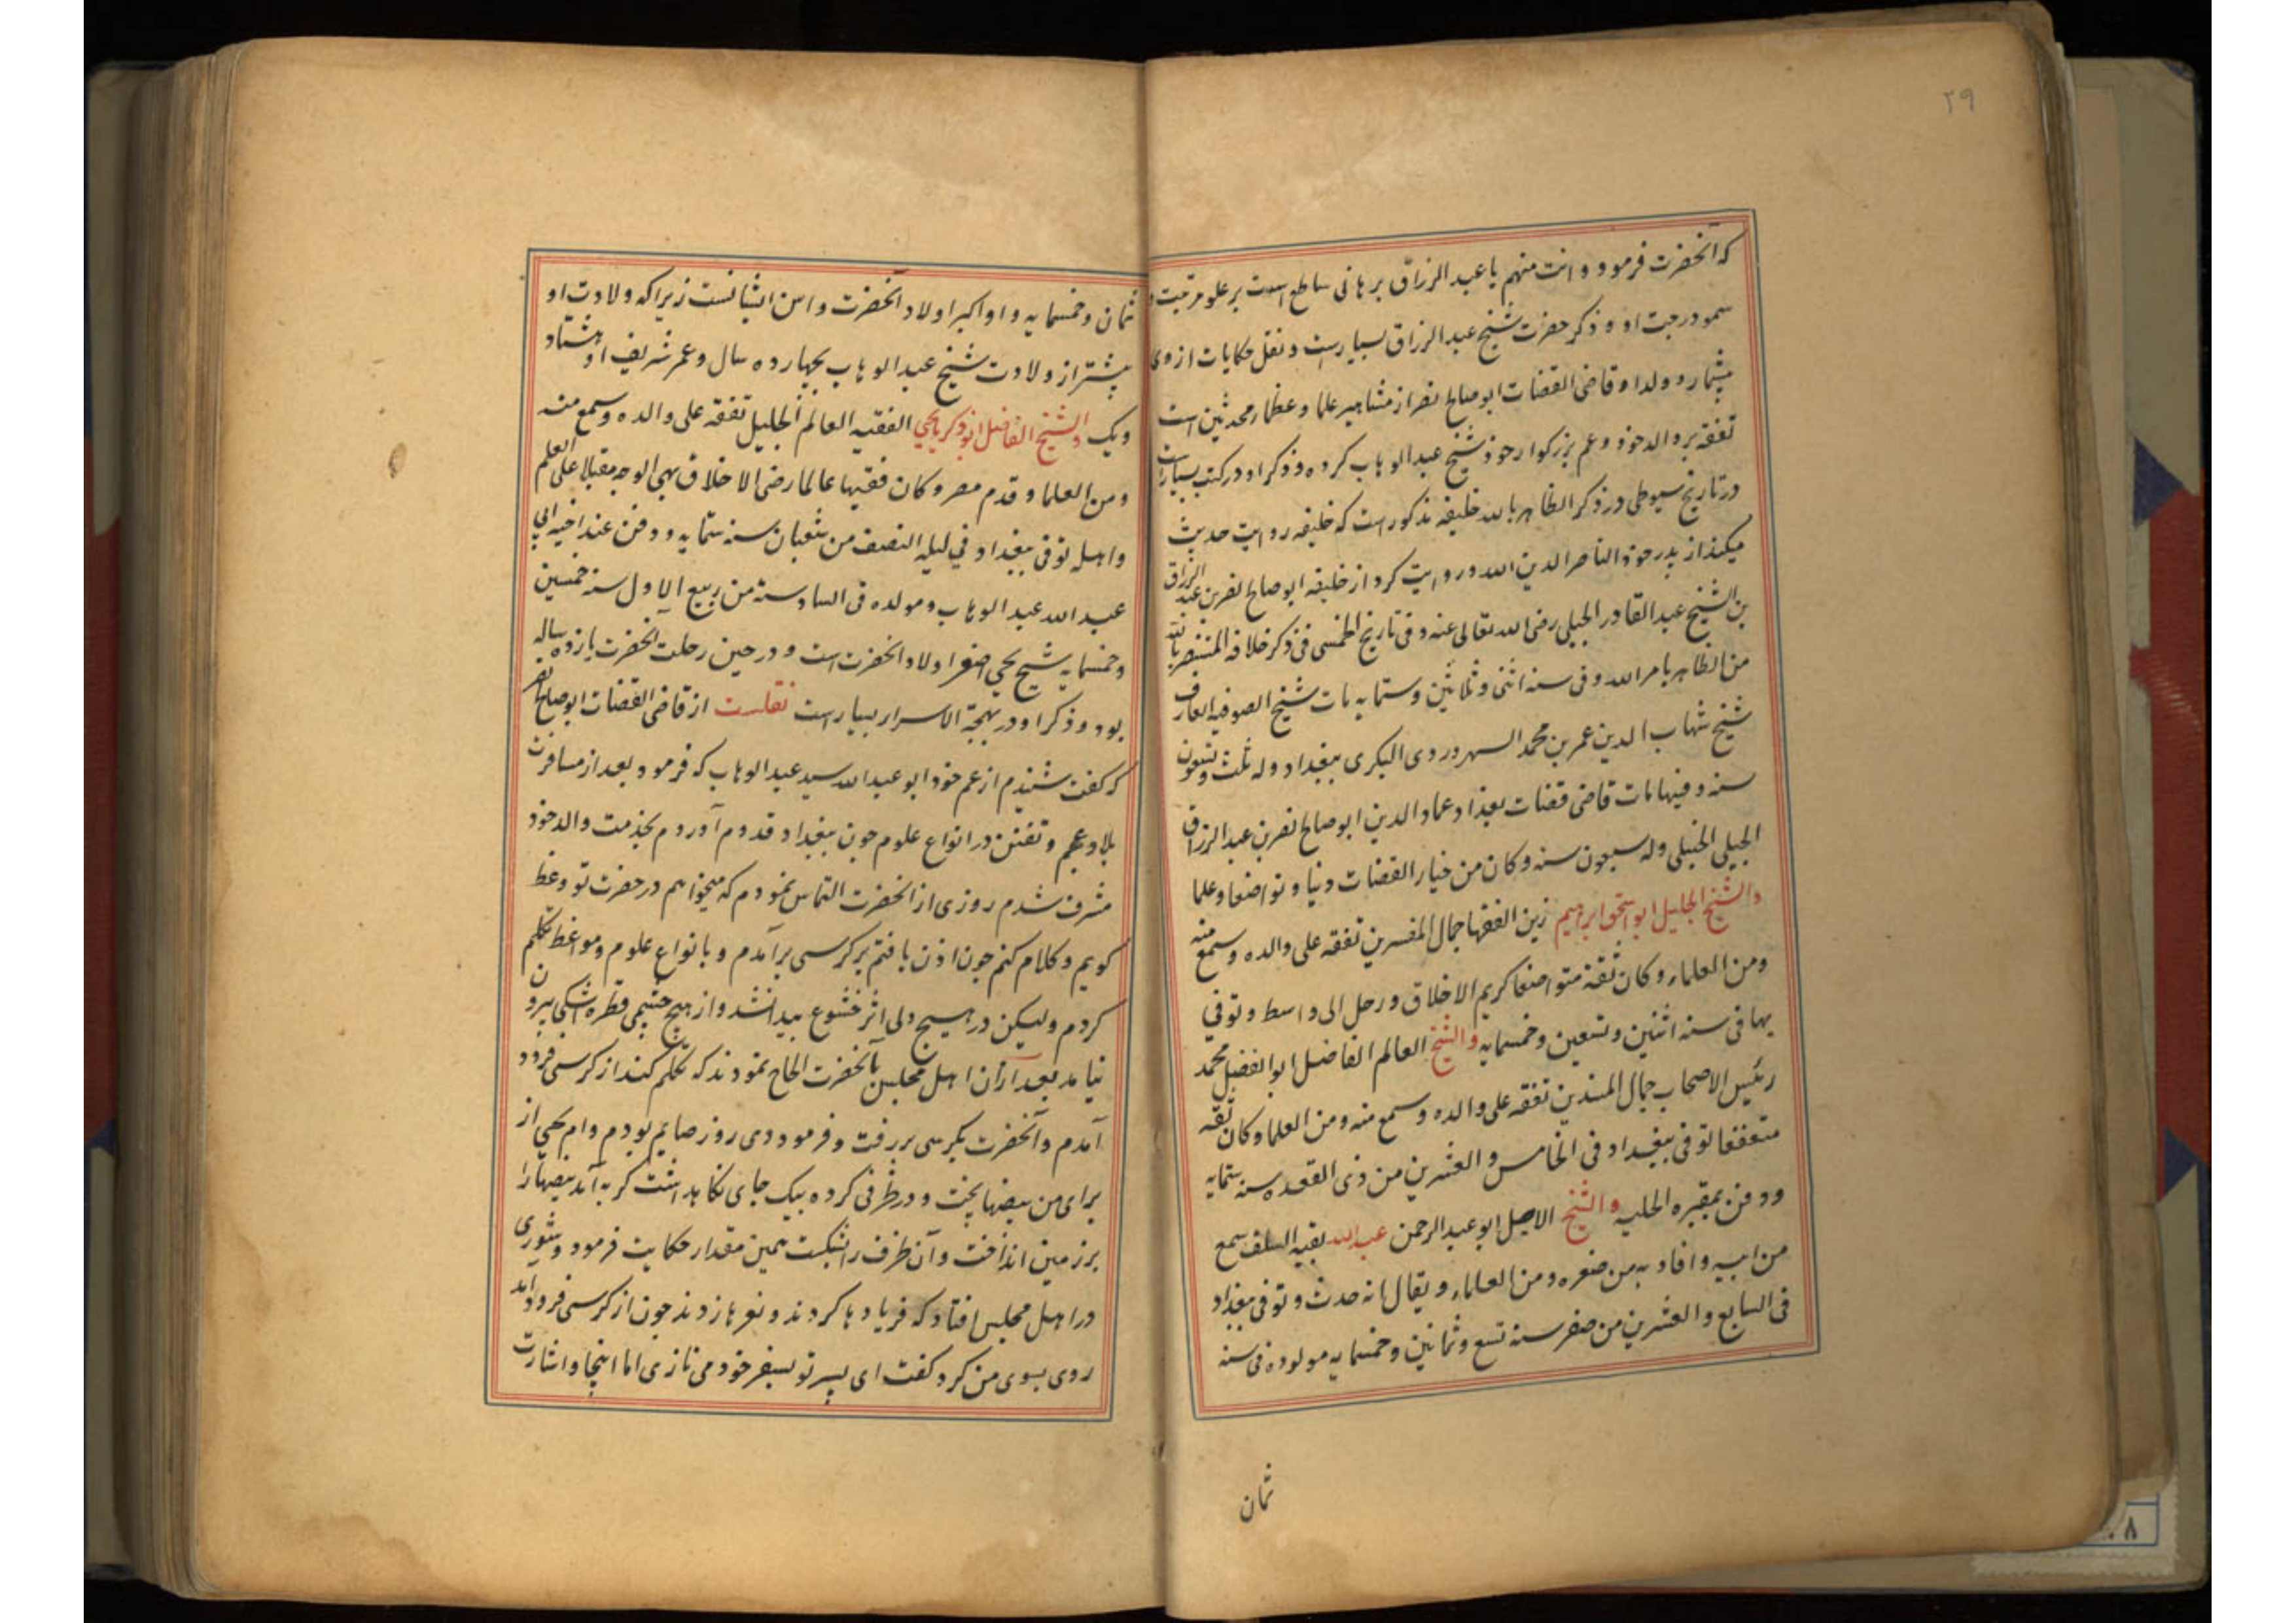 ۲۹
که آنحضرت فرمود و انت منهم یا عبد الرزاق برهانی ساطع است بر علو مرتبت و
سمو درجت او و ذکر حضرت شیخ عبد الرزاق بسیارست و نقل حکایات از وی
بیشمار و ولد او قاضی القضات ابو صالح نصر از مشاهیر علما و عظمار محدثین است
تفقه بر والد خود و عم بزرکوار خود شیخ عبد الوهاب کرده و ذکر او در کتب بسیارست
در تاریخ سیوطی در ذکر الظاهر بالله خلیفه مذکور است که خلیفه روایت حدیث
میکند از پدر خود الناصر الدین الله و روایت کرد از خلیفه ابو صالح نصر بن عبد الرزاق
بن الشیخ عبد القادر الجیلی رضی الله تعالی عنه و فی تاریخ الطنسی فی ذکر خلافه المنتصر بالله
من الظاهر بامر الله و فی سنه اثنی و ثلاثین و ستمایه مات شیخ الصوفیه العارف
شیخ شهاب الدین عمر بن محمد السهروردی البکری ببغداد وله ثلث و تسعون
سنه و فیها مات قاضی قضات بغداد عماد الدین ابو صالح نصر بن عبد الرزاق
الجیلی الحنبلی وله سبعون سنه و کان من خیار القضات دنیا و تواضعا و علما
والشیخ الجلیل ابو اسحق ابراهیم زین الفقها جمال المفسرین تفقه علی والده و سمع منه
ومن العلماء و کان ثقة متواضعا کریم الاخلاق و رحل الی واسط و توفی
بها فی سنه اثنین و تسعین و خمسمایه والشیخ العالم الفاضل ابو الفضل محمد
رئیس الاصحاب جمال المسندین تفقه علی والده و سمع منه ومن العلما و کان ثقه
متعففا توفی ببغداد فی الخامس و العشرین من ذی القعده سنه ستمایه
ودفن بمقبره الحلبه والشیخ الاصیل ابو عبد الرحمن عبد الله بقیه السلف سمع
من ابیه و افاد به من صغره ومن العلماء و یقال انه حدث و توفی ببغداد
فی السابع والعشرین من صفر سنه تسع و ثمانین و خمسمایه مولوده فی سنه
ثمان
ثمان و خمسمایه و او اکبر اولاد آنحضرت و اسن ایشانست زیرا که ولادت او
پیشتر از ولادت شیخ عبد الوهاب بچهارده سال و عمر شریف او هشتاد
ویک والشیخ الفاضل ابو زکریا یحیی الفقیه العالم الجلیل تفقه علی والده و سمع منه
ومن العلما و قدم مصر و کان فقیها عالما رضی الاخلاق بهی الوجه مقبلا علی العلم
واهله توفی ببغداد فی لیله النصف من شعبان سنه ستمایه و دفن عند اخیه ابی
عبد الله عبد الوهاب و مولده فی السادسة من ربیع الاول سنه خمسین
وخمسمایه شیخ یحیی اصغر اولاد آنحضرت است و در حین رحلت آنحضرت یازده ساله
بود و ذکر او در بهجة الاسرار بسیارست نقلست از قاضی القضات ابو صالح نصر
که کفت شنیدم از عم خود ابو عبد الله سید عبد الوهاب که فرمود بعد از مسافرت
بلاد عجم و تفنن در انواع علوم چون ببغداد قدوم آوردم بخدمت والد خود
مشرف شدم روزی از آنحضرت التماس نمودم که میخواهم در حضرت تو وعظ
کویم و کلام کنم چون اذن یافتم بر کرسی برآمدم و بانواع علوم و مواعظ تکلم
کردم ولیکن در هیچ دلی اثر خشوع پیدا نشد و از هیچ چشمی قطره اشکی بیرون
نیامد بعد ازان اهل مجلس بآنحضرت الحاح نمودند که تکلم کند از کرسی فرود
آمدم و آنحضرت بکرسی بر رفت و فرمود دی روز صایم بودم و ام یحیی از
برای من بیضها پخت و در ظرفی کرده بیک جای نکاهداشت کربه آمد بیضها را
بر زمین انداخت و آن ظرف را شکست همین مقدار حکایت فرمود و شوری
در اهل مجلس افتاد که فریادها کردند و نعرها زدند چون از کرسی فرود آمد
روی بسوی من کرد کفت ای پسر تو بسفر خود می نازی اما اینجا و اشارت
۸